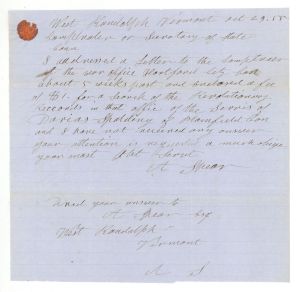 West Randolph Vermont Oct 29. 18
Comptroller or Secretary of State
Conn
I addressed a Letter to the Comptroller
of the war office Hartford City Con
about 5 weeks past and enclosed a fee
of $1. for a Search of the Revolutionary
records in that office of the Services of
Darius Spalding of Plainfield Con
and I have not received any answer
your attention is requested & much oblige
your most Obt Servt
A Spear
Direct your answer to
A Spear Esq
West Randolph
Vermont
A S